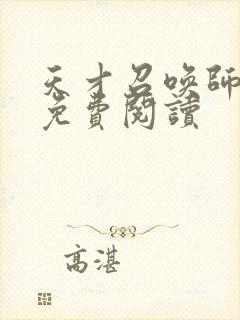 天才召喚師
免費閱讀
高湛